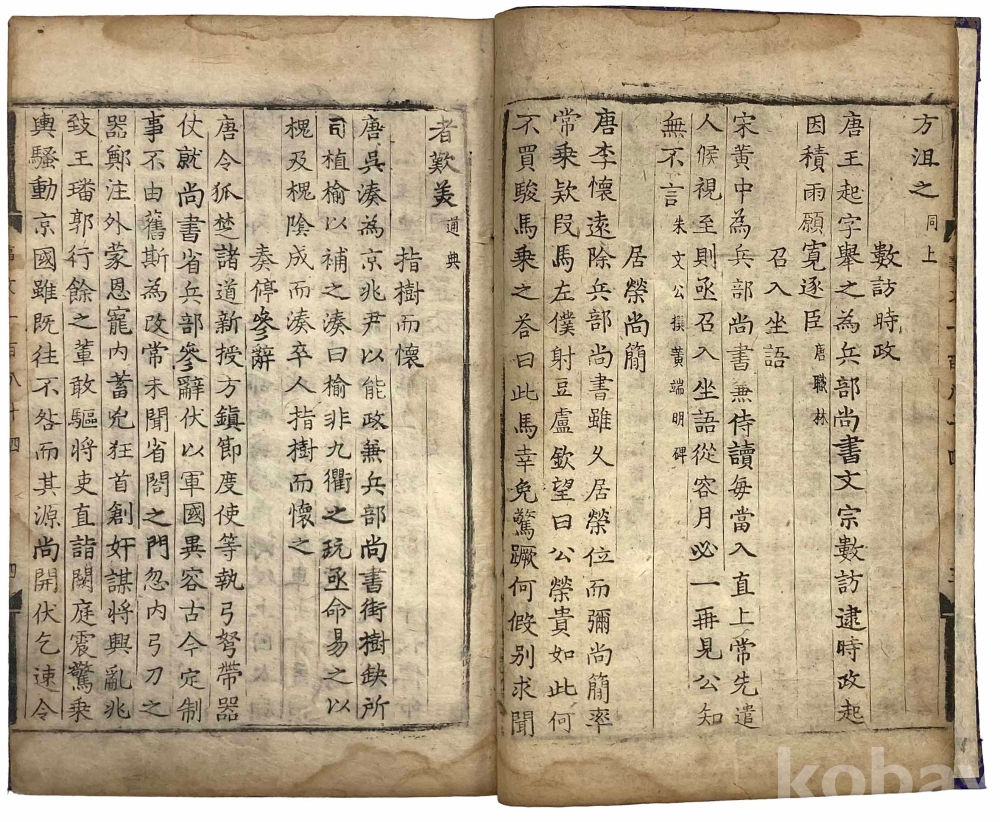 方沮之同上
數訪時政
唐王起字舉之為兵部尚書文宗數訪逮時政起
因積雨願寬逐臣唐職林
召入坐語
宋黃中為兵部尚書兼侍讀每當入直上常先遣
人候視至則亟召入坐語從容月必一再見公知
無不言朱文公撰黃端明碑
居榮尚簡
唐李懷遠除兵部尚書雖久居榮位而彌尚簡率
常乘欵段馬左僕射豆盧欽望曰公榮貴如此何
不買駿馬乘之荅曰此馬幸免驚蹶何假别求聞
者歎美通典
指樹而懷
唐吳湊為京兆尹以能政兼兵部尚書街樹缺所
司植榆以補之湊曰榆非九衢之玩亟命易之以
槐及槐陰成而湊卒人指樹而懷之
奏停參辭
唐令狐楚諸道新授方鎮節度使等執弓弩帶器
仗就尚書省兵部參辭伏以軍國異容古今定制
事不由舊斯為改常未聞省閤之門忽内弓刀之
器鄭注外蒙恩寵内蓄兇狂首創奸謀將興亂兆
致王璠郭行餘之輩敢驅將吏直詣闕庭震驚乘
輿騷動京國雖既往不咎而其源尚開伏乞速令
kobay